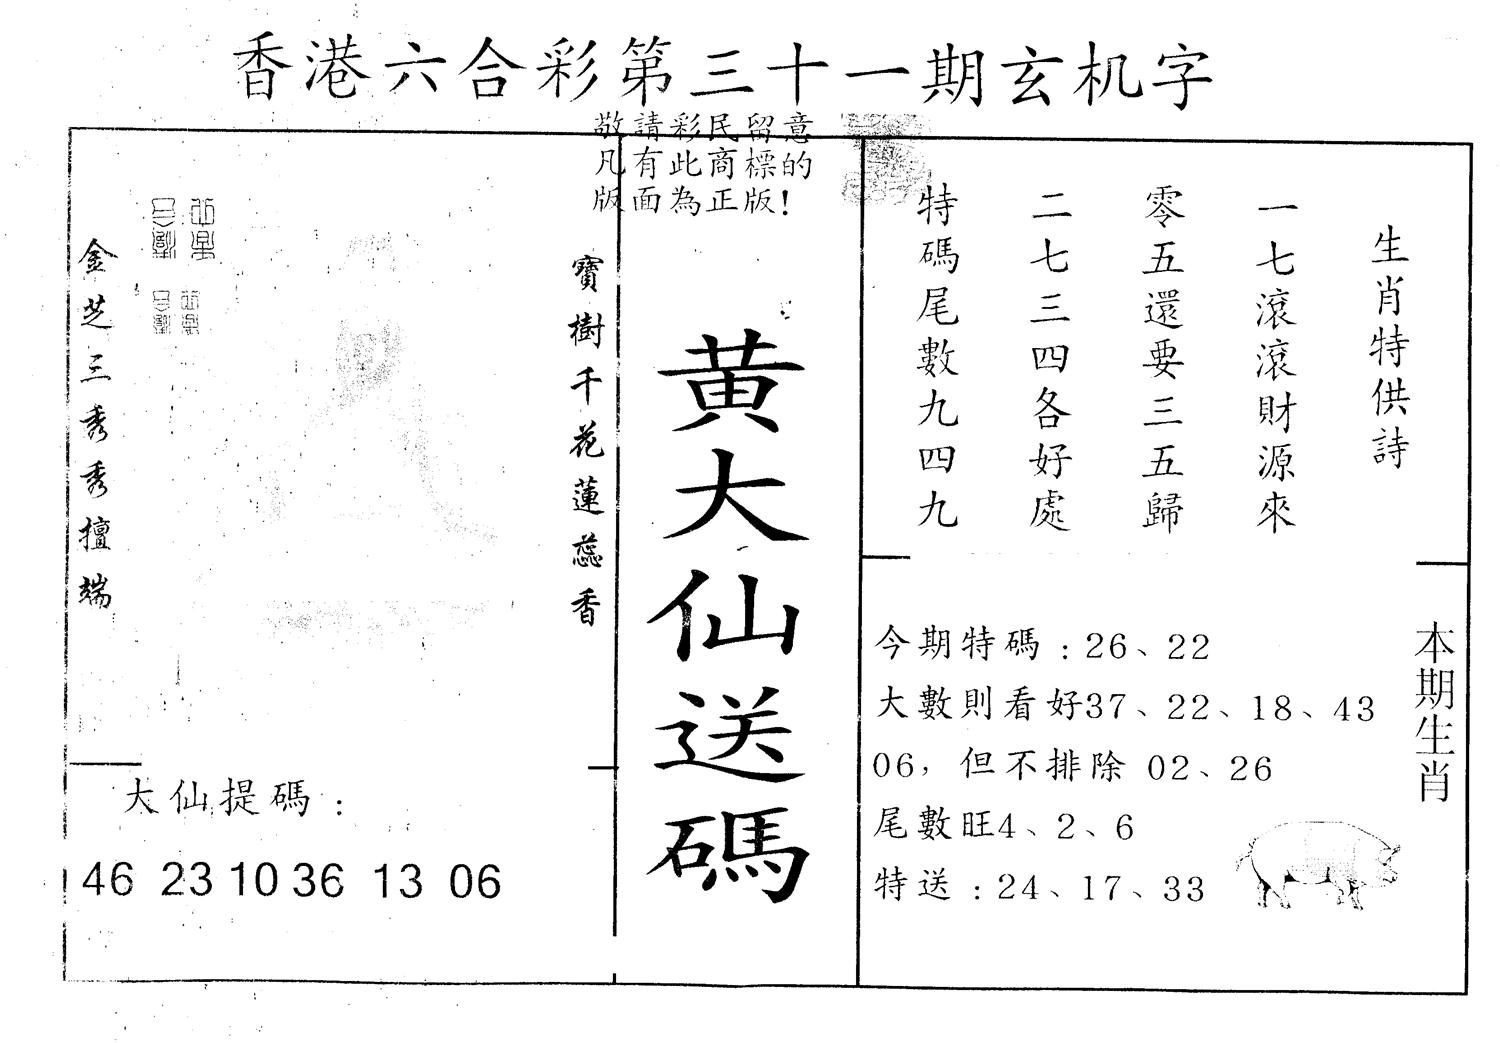 香港六合彩第三十一期玄机字
敬請彩民留意
凡有此商標的
版面為正版!
寶樹千花蓮蕊香
金芝三秀秀擅端
大仙提碼:
46 23 10 36 13 06
黄大仙送碼
生肖特供詩
一七滾滾財源來
零五還要三五歸
二七三四各好處
特碼尾數九四九
本期生肖
今期特碼:26、22
大數則看好37、22、18、43
06,但不排除 02、26
尾數旺4、2、6
特送:24、17、33